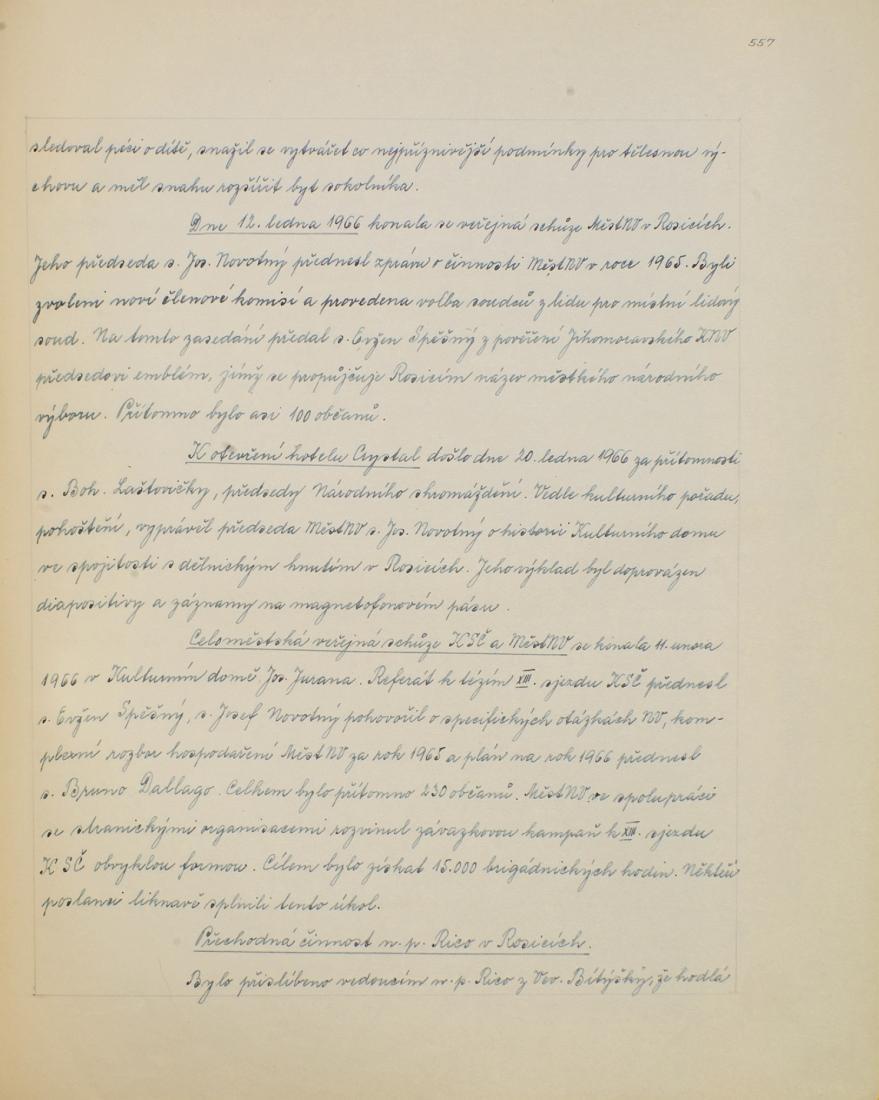 557
sledoval péči o dítě, snažil se vytvářet co nejpříznivější podmínky pro tělesnou vý-
chovu a měl snahu rozšířit byt sokolníka.
Dne 12. ledna 1966 konala se veřejná schůze MěstNV v Rosicích.
Jeho předseda s. Jos. Novotný přednesl zprávu o činnosti MěstNV v roce 1965. Byli
zvoleni noví členové komisí a provedena volba soudců z lidu pro místní lidový
soud. Na tomto zasedání předal s. Evžen Spěšný z pověření Jihomoravského KNV
předsedovi emblém, jímž se propůjčuje Rosicím název městkého národního
výboru. Přítomno bylo asi 100 občanů.
K otevření hotelu Crystal došlo dne 20. ledna 1966 za přítomnosti
s. Boh. Laštovičky, předsedy Národního shromáždění. Vedle kulturního pořadu,
pohoštění, vyprávěl předseda MěstNV s. Jos. Novotný o historii Kulturního domu
ve spojitosti s dělnickým hnutím v Rosicích. Jeho výklad byl doprovázen
diapositivy a záznamy na magnetofonovém pásu.
Celoměstská veřejná schůze KSČ a MěstNV se konala 11. února
1966 v Kulturním domě Jos. Jurana. Referát k tézím XIII. sjezdu KSČ přednesl
s. Evžen Spěšný, s. Josef Novotný pohovořil o specifických otázkách NV, kom-
plexní rozbor hospodaření MěstNV za rok 1965 a plán na rok 1966 přednesl
s. Bruno Dallago. Celkem bylo přítomno 230 občanů. MěstNV ve spolupráci
se stranickými organisacemi rozvinul závazkovou kampaň k XIII. sjezdu
KSČ obvyklou formou. Cílem bylo získat 15.000 brigádnických hodin. Někteří
poslanci liknavě splnili tento úkol.
Přechodná činnost n. p. Rico v Rosicích.
Bylo přislíbeno vedoucím n. p. Rico z Vev. Bítýšky, že hodlá